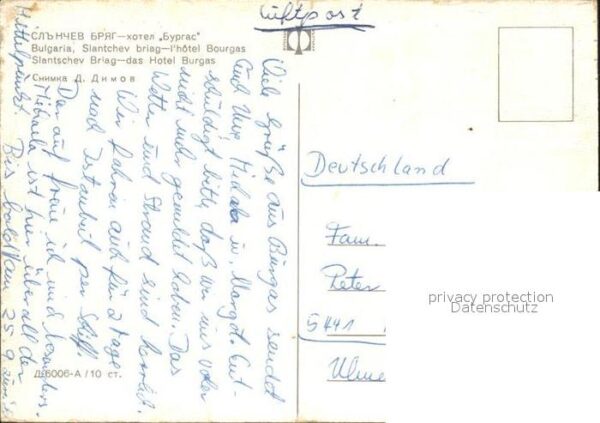 Luftpost
СЛЪНЧЕВ БРЯГ—хотел „Бургас"
Bulgaria, Slantchev briag—l'hôtel Bourgas
Slantschev Briag—das Hotel Burgas
Снимка Д. Димов
Viele Grüße aus Burgas sendet
Euch Uwe, u. Margot. Ent-
schuldigt bitte, daß wir uns vorher
nicht mehr gemeldet haben. Das
Wetter und Strand sind herrlich.
Wir fahren auch für 2 Tage
nach Istanbul per Schiff.
Darauf freue ich mich besonders.
Michaela ist hier überall der
Mittelpunkt. Bis bald
Д-6006-А/10 ст.
Deutschland
Fam.
Peter
5441
privacy protection
Datenschutz